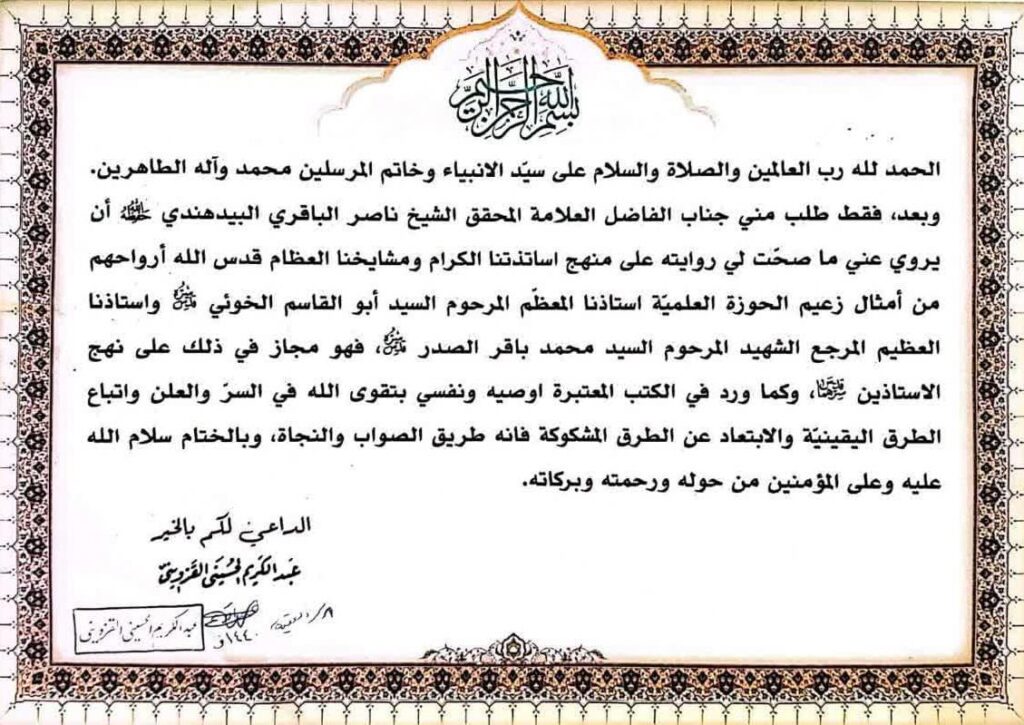 بسم الله الرحمن الرحيم
الحمد لله رب العالمين والصلاة والسلام على سيّد الانبياء وخاتم المرسلين محمد وآله الطاهرين.
وبعد، فقط طلب مني جناب الفاضل العلامة المحقق الشيخ ناصر الباقري البيدهندي حفظه الله أن
يروي عني ما صحّت لي روايته على منهج اساتذتنا الكرام ومشايخنا العظام قدس الله أرواحهم
من أمثال زعيم الحوزة العلميّة استاذنا المعظّم المرحوم السيد أبو القاسم الخوئي قدس سره واستاذنا
العظيم المرجع الشهيد المرحوم السيد محمد باقر الصدر قدس سره، فهو مجاز في ذلك على نهج
الاستاذين قدس سرهما، وكما ورد في الكتب المعتبرة اوصيه ونفسي بتقوى الله في السرّ والعلن واتباع
الطرق اليقينيّة والابتعاد عن الطرق المشكوكة فانه طريق الصواب والنجاة، وبالختام سلام الله
عليه وعلى المؤمنين من حوله ورحمته وبركاته.
الداعي لكم بالخير
عبد الكريم الحسيني القزويني
٨/ ١٤٤٠
عبد الكريم الحسيني القزويني